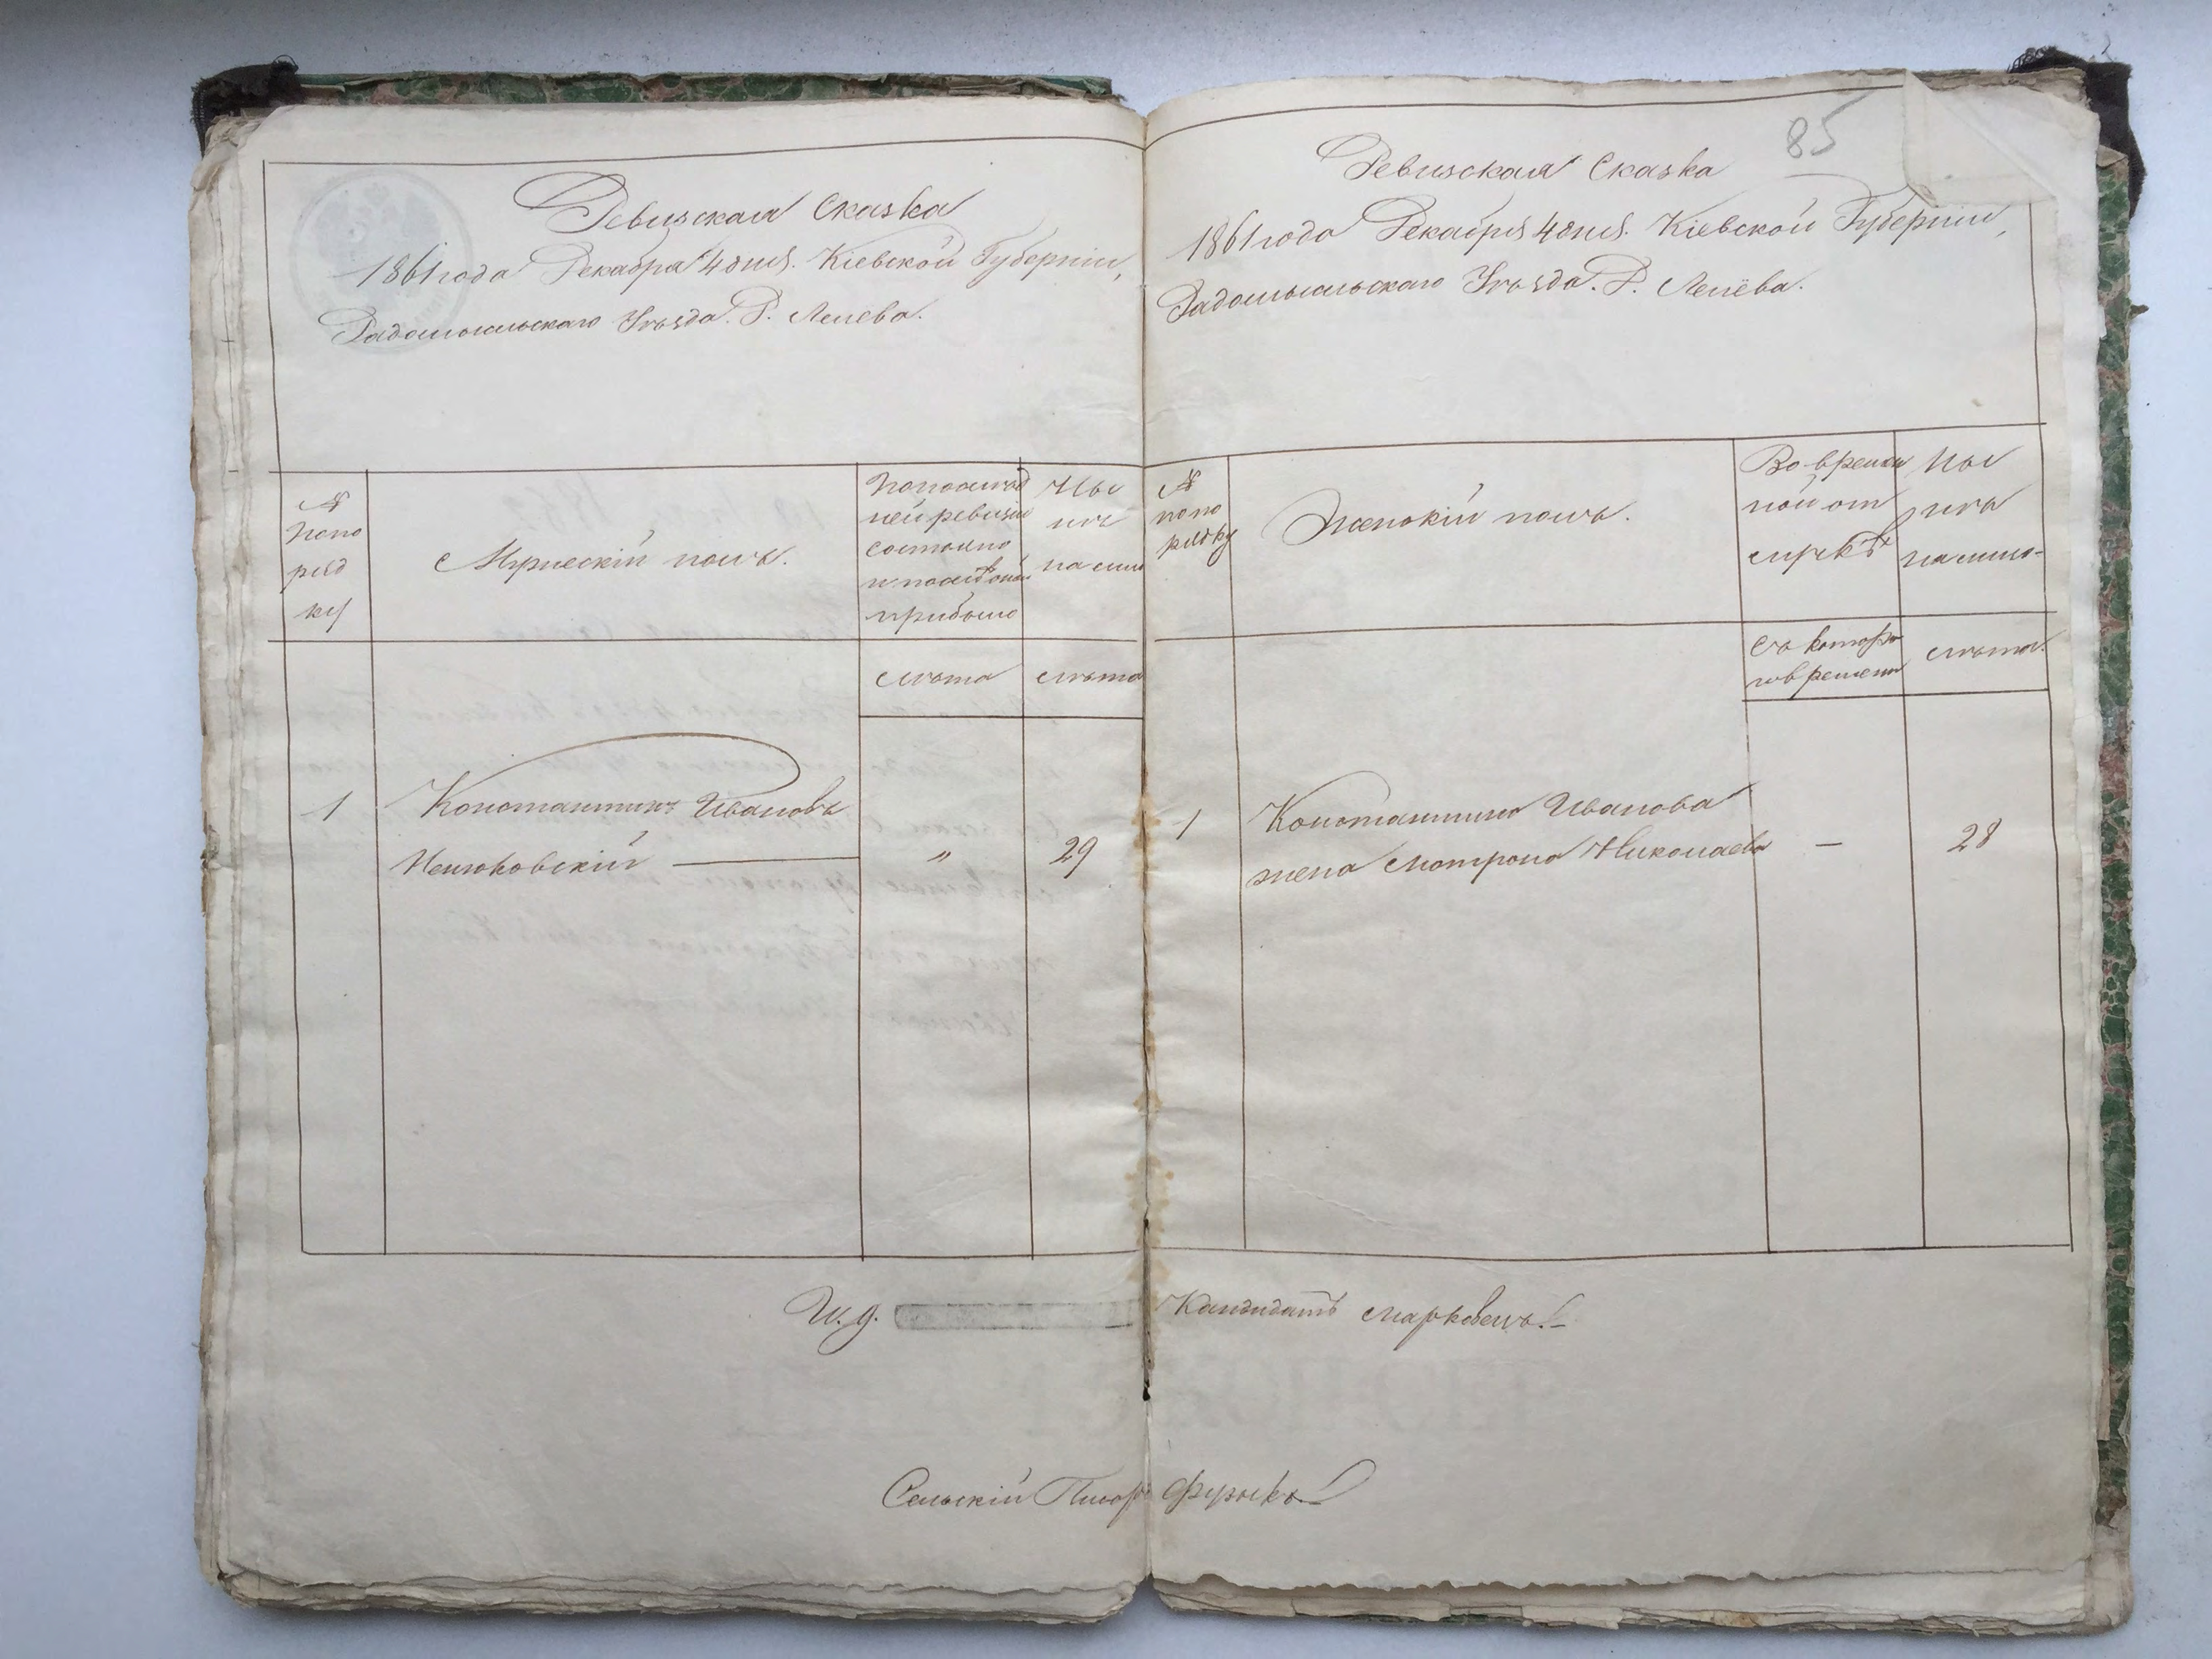 Ревизская Сказка
1861 года Декабря 4 дня. Кіевской Губерніи,
Радомысльскаго Уѣзда.
№ по по ряд ку
Мужескій полъ.
По послѣд
ней ревизіи
состояло
и послѣ оной
прибыло
Ны
нѣ
на лицо
лѣта
лѣта
1
Константинъ Ивановъ
"
29
85
Ревизская Сказка
1861 года Декабря 4 дня. Кіевской Губерніи,
Радомысльскаго Уѣзда.
№ по по рядку
Женскій полъ.
Во времен
ной от
лучкѣ
Ны
нѣ
на лицо
Съ котора
го времени
лѣта.
1
Константина Иванова
жена Мотрона Николаева
—
28
И. д.
Кандидатъ
Сельскій Писарь